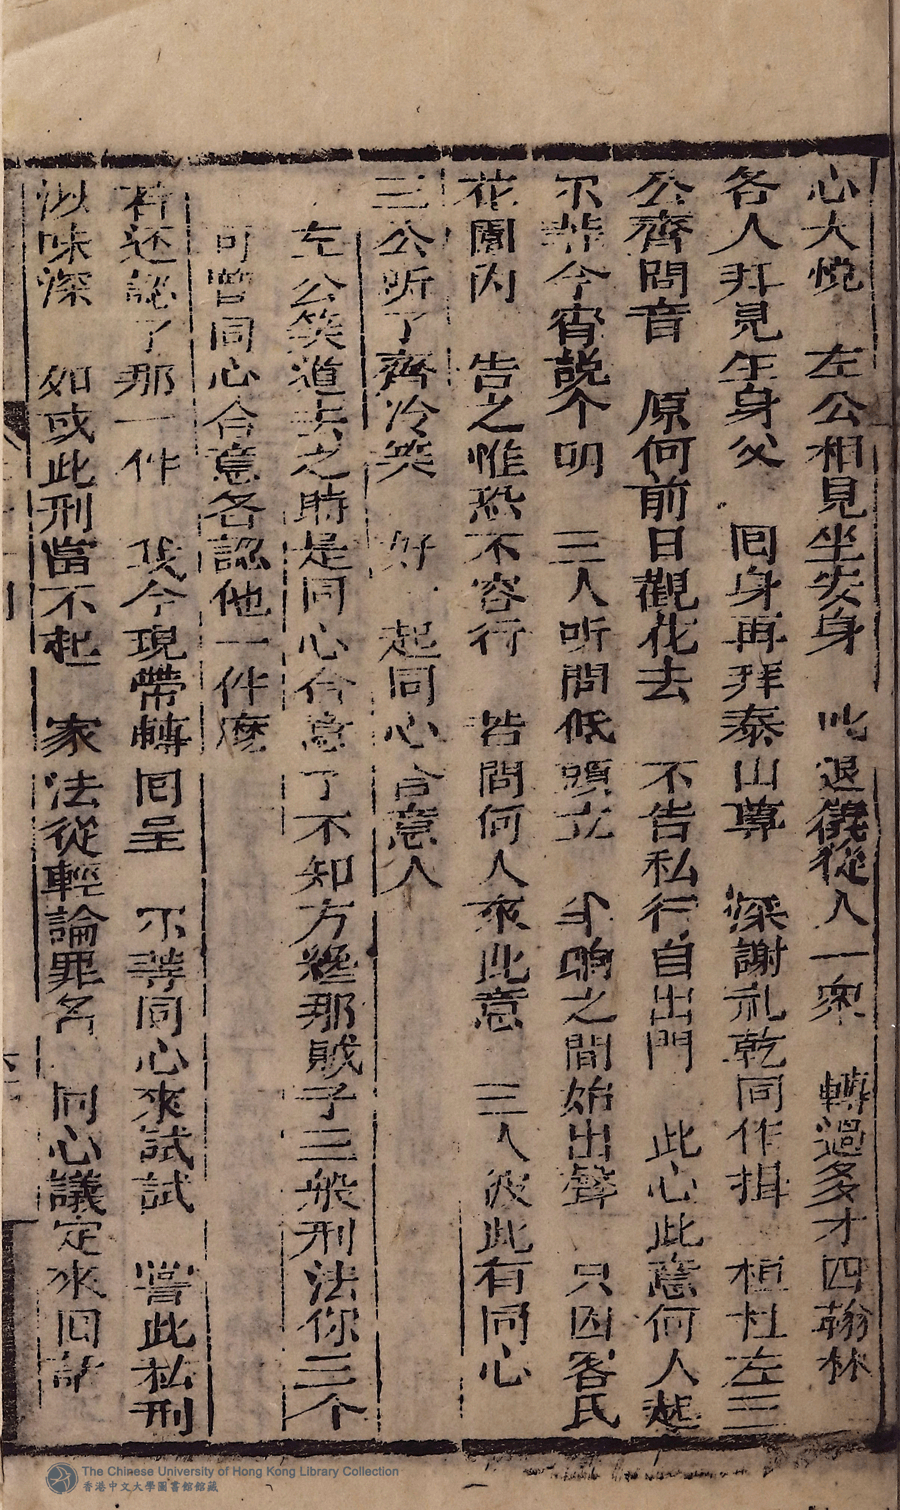 心大悅　左公相見坐安身　叱退儀從人一衆　轉過多才四翰林
各人拜見生身父　囘身再拜泰山尊　深謝礼乾同作揖　桓杜左三
公齊問音　原何前日觀花去　不告私行自出門　此心此意何人起
不帮今宵說个明　三人听問低頭立　半晌之間始出聲　只因客氏
花園内　告之惟恐不容行　若問何人來此意　三人彼此有同心
三公听了齊冷笑　好一起同心合意人
左公笑道去之時是同心合意了不知方纔那賊子三般刑法你三个
可曾同心合意各認他一件麽
若还認了那一件　我今現帶轉囘呈　不等同心來試試　嘗此私刑
滋味深　如或此刑當不起　家法從輕論罪名　同心議定來囘話
The Chinese University of Hong Kong Library Collection
香港中文大學圖書館館藏